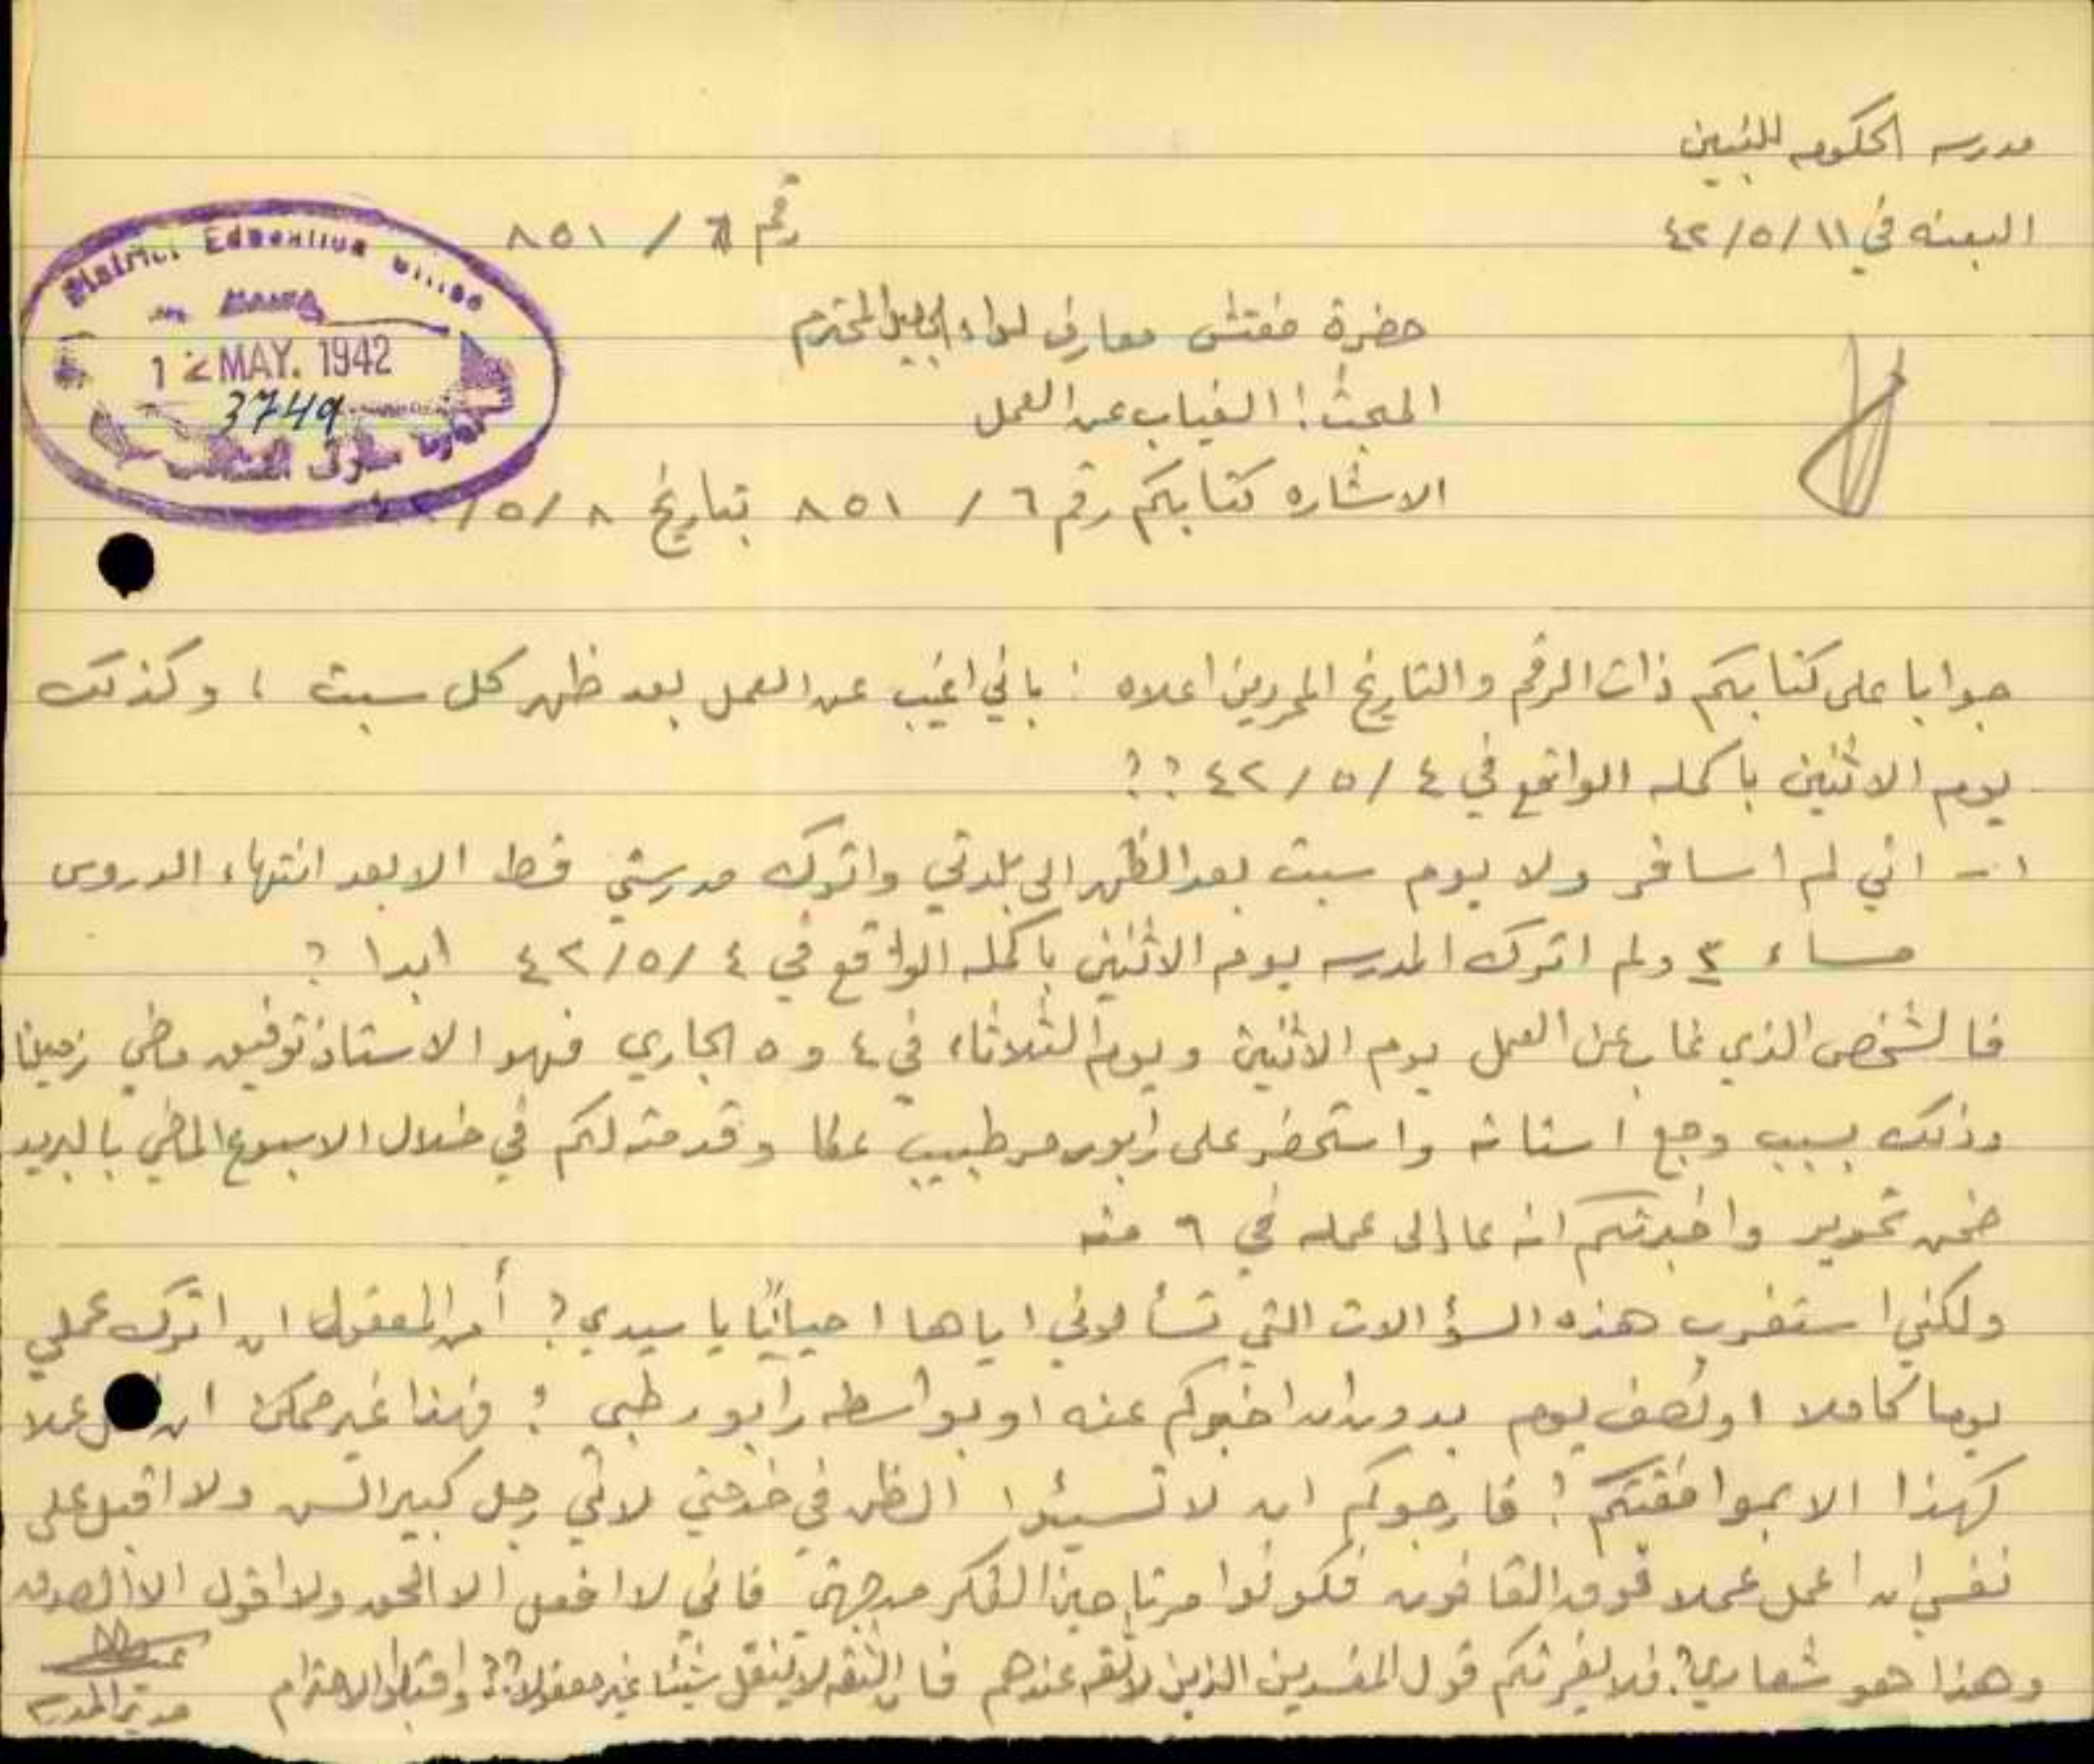 مدرسه الحكومه للبنين
البعنه في ١١/٥/٤٢
رقم ٦/ ٨٥١
District Education Office
12 MAY. 1942
3749
حضرة مفتش معارف لواء الجليل المحترم
المبحث: الغياب عن العمل
الاشاره كتابكم رقم ٦/ ٨٥١ بتاريخ ٨/٥/
جوابا على كتابكم ذات الرقم والتاريخ المحررين اعلاه : باني اغيب عن العمل بعد ظهر كل سبت ، وكذلك
يوم الاثنين باكمله الواقع في ٤/٥/٤٢ ؟؟
١- اني لم اسافر ولا يوم سبت بعد الظهر الى بلدتي واترك مدرستي قط الا بعد انتهاء الدروس
مساء ٢ ولم اترك المدرسه يوم الاثنين باكمله الواقع في ٤/٥/٤٢ ابدا ؟
فالشخص الذي غاب عن العمل يوم الاثنين ويوم الثلاثاء في ٤ و ٥ الجاري فهو الاستاذ توفيق ماضي زميلنا
وذلك بسبب وجع اسنانه واستحضر على رابور من طبيب عكا وقدمته لكم في خلال الاسبوع الماضي بالبريد
ضمن تحرير واخبرتكم انه عاد الى عمله في ٦ منه
ولكني استغرب هذه السؤالات التي تسألوني اياها احيانًا يا سيدي؟ أمن المعقول ان اترك عملي
يوما كاملا او نصف يوم بدون ان اخبركم عنه او بواسطه رابور طبي ؟ فهذا غير ممكن ان عملا
كهذا الا بموافقتكم ؟ فارجوكم ان لا تسيئوا الظن في خدمتي لاني رجل كبير السن ولا اقبل على
نفسي ان اعمل عملا فوق القانون فكونوا مرتاحين الفكر من جهتي فاني لا افعل الا الحق ولا اقول الا الصدق
وهذا هو شعاري؟ فلا يغرنكم قول المفسدين الذين لا ثقه عندهم فان الثقه لا ينقل شيئا غير معقولا؟؟ واقبلوا الاحترام
مدير المدرسه